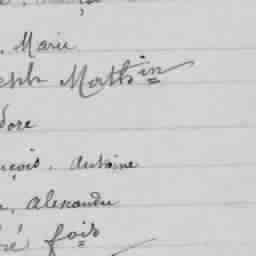 . Marie
eph Mathin
dore
nçois. Antoine
, Alexandre
ré fois